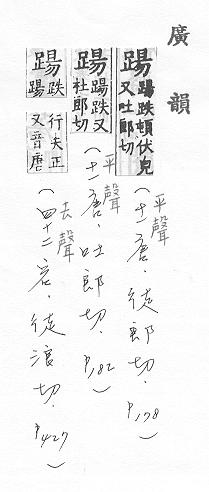 廣韻
踼 踼跌頓伏皃又吐郎切 (平聲 十一唐.徒郎切. P.178)
踼 踼跌又杜郎切 (平聲 十一唐.吐郎切. P.182)
踼 跌踼 行失正又音唐 (去聲 四十二宕.徒浪切. P.427)